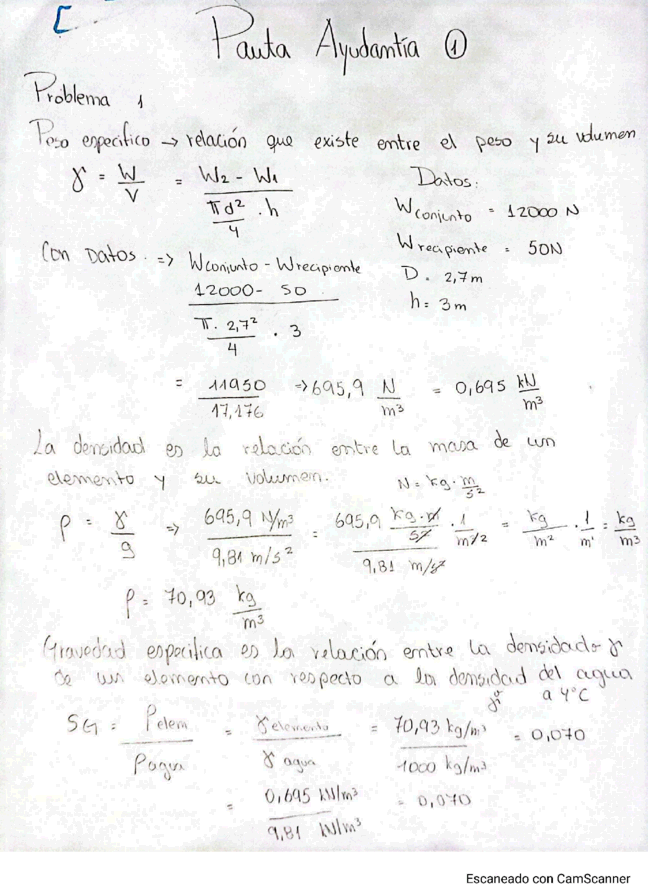 Pauta Ayudantía ①
Problema 1
Peso especifico → relación que existe entre el peso y su volumen
γ = W/V = (W2 - W1)/(πd²/4 · h)
Datos:
Wconjunto = 12000 N
Wrecipiente = 50N
D = 2,7m
h = 3m
Con Datos => Wconjunto - Wrecipiente
(12000 - 50)/(π · 2,7²/4 · 3)
= 11950/17,176 => 695,9 N/m³ = 0,695 kN/m³
La densidad es la relación entre la masa de un
elemento y su volumen. N = kg · m/s²
ρ = γ/g => (695,9 N/m³)/(9,81 m/s²) = (695,9 kg·m/s² · 1/m³2)/(9,81 m/s²) = kg/m² · 1/m¹ = kg/m³
ρ = 70,93 kg/m³
Gravedad especifica es la relación entre la densidad o γ
de un elemento con respecto a la densidad del agua
o γ a 4°C
SG = ρelem/ρagua = γelemento/γagua = (70,93 kg/m³)/(1000 kg/m³) = 0,070
= (0,695 kN/m³)/(9,81 kN/m³) = 0,070
Escaneado con CamScanner